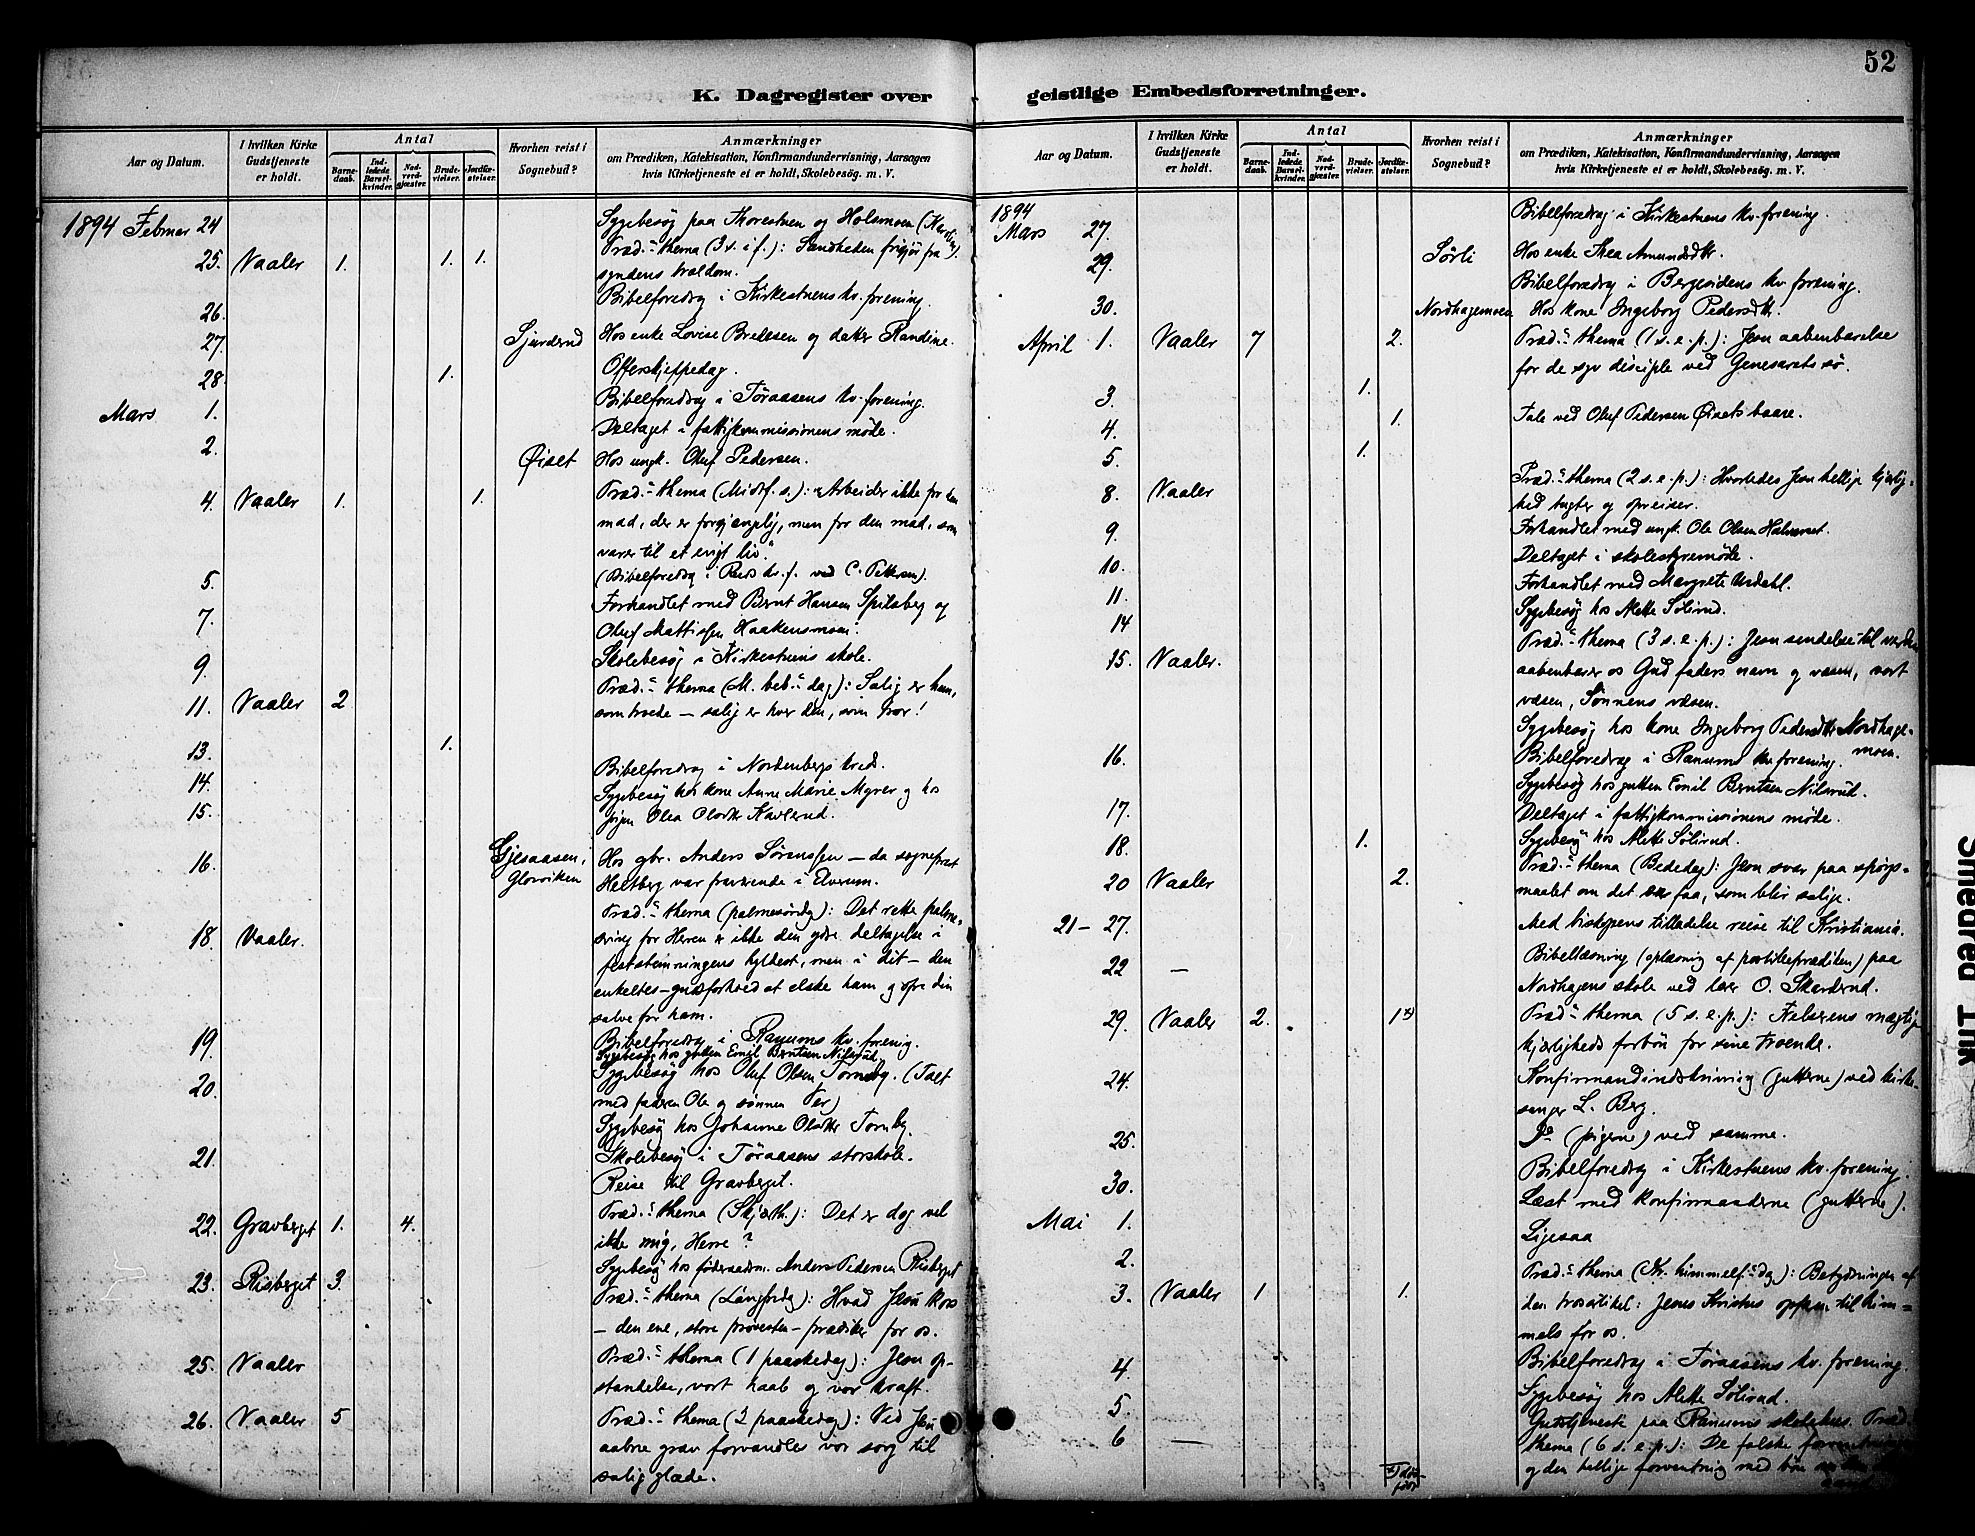 52
K. Dagregister over geistlige Embedsforretninger.
Aar og Datum.
I hvilken Kirke Gudstjeneste er holdt.
Antal
Barnedaab.
Indledede Barselkvinder.
Nadverdgjæster.
Brudevielser.
Jordfæstelser.
Hvorhen reist i Sognebud?
Anmærkninger
om Prædiken, Katekisation, Konfirmandundervisning, Aarsagen
hvis Kirketjeneste ei er holdt, Skolebesøg. m. V.
1894 Februar 24 Sygebesøg paa Thorestuen og Holsmoen
25. Vaaler 1. 1. 1. Præd.- thema (3 s. i f.): Sandheden frigjør fra
syndens trældom.
26. Bibelforedrag i Kirkestuens kv. forening.
27. Sjurderud Hos enke Lovise Bredesen og datter Randine.
28. 1. Offerskjeppedag.
Mars 1. Bibelforedrag i Tøraasens kv. forening.
2. Deltaget i fattigkommissionens møde.
Øiset Hos ungk. Oluf Pedersen.
4. Vaaler 1. 1. Præd.- thema (Midtf. s.): "Arbeider ikke for den
mad, der er forgjængelig, men for den mad, som
varer til et evigt liv."
5. (Bibelforedrag i kv. f. ved C. Pettersen).
7. Forhandlet med Bernt Hansen Spilsberg og
Oluf Mattissen Haakensmoen.
9. Skolebesøg i Kirkestuens skole.
11. Vaaler 2 Præd.- thema (M. beb.- dag): Salig er hun,
som troede – salig er hver den, som tror!
13. 1.
14. Bibelforedrag i Nordenbergs kreds.
15. Sygebesøg hos kone Anne Marie Myrer og hos
pigen Olea Olsdtr Kavlerud.
16. Gjesaasen, Glorviken Hos gbr. Anders Sørenssen – da sogneprest
Heltberg var fraværende i Elverum.
18. Vaaler. Præd.- thema (palmesøndag): Det rette palme-
sving for Herren er ikke den ydre deltagelse i
feststemningens hyldest, men i dit – den
enkeltes – gudsforhold at elske ham og ofre din
salve for ham.
19. Bibelforedrag i Ranums kv. forening.
Sygebesøg hos gutten Emil Berntsen Nilsrud.
20. Sygebesøg hos Oluf Olsen Tørneby. (Talt
med faderen Ole og sønnen Per)
Sygebesøg hos Johanne Olsdtr Tornby.
21. Skolebesøg i Tøraasens storskole.
Reise til Gravberget.
22. Gravberget 1. 4. Præd.- thema (Skjærth.): Det er dog vel
ikke mig, Herre?
Sygebesøg hos føderaadsm. Anders Pedersen Risberget
23. Risberget 3. Præd.- thema (Langfredag): Hvad Jesu kors
– den ene, store – prædiker for os.
25. Vaaler Præd.- thema (1 paaskedag): Jesu op-
standelse, vort haab og vor kraft.
26. Vaaler 5 Præd.- thema (2 paaskedag): Ved Jesu
aabne grav forvandles vor sorg til
salig glæde.
Aar og Datum.
I hvilken Kirke Gudstjeneste er holdt.
Antal
Barnedaab.
Indledede Barselkvinder.
Nadverdgjæster.
Brudevielser.
Jordfæstelser.
Hvorhen reist i Sognebud?
Anmærkninger
om Prædiken, Katekisation, Konfirmandundervisning, Aarsagen
hvis Kirketjeneste ei er holdt, Skolebesøg. m. V.
1894
Mars 27. Bibelforedrag i Kirkestuens kv. forening.
29. Sørli Hos enke Thea Amundsdtr.
Bibelforedrag i Bergesidens kv. forening.
30. Nordhagemoen Hos kone Ingeborg Pedersdtr.
April 1. Vaaler 7 2. Præd.- thema (1 s. e. p.): Jesu aabenbarelse
for de syv disciple ved Genesarets sø.
3. 1.
4. 1. Tale ved Oluf Pedersen Øisets baare.
5. 1.
8. Vaaler Præd.- thema (2 s. e. p.): Hvorledes Jesu hellige kjærlig-
hed tugter og opreiser.
9. Forhandlet med ungk. Ole Olsen
10. Deltaget i skolestyremøde.
11. Forhandlet med Margrete
14 Sygebesøg hos Mette Sølirud.
15. Vaaler. Præd.- thema (3 s. e. p.): Jesu sendelse til verden
aabenbarer os Gud faders navn og væsen, vort
væsen, Sønnens væsen.
Sygebesøg hos kone Ingeborg Pedersdtr Nordhage-
moen.
16. Bibelforedrag i Ranums kv. forening.
Sygebesøg hos gutten Emil Berntsen Nilsrud.
17. Deltaget i fattigkommissionens møde.
18. 1. Sygebesøg hos Mette Sølirud.
20 Vaaler 2. Præd.- thema (Bededag): Jesu svar paa spørgs-
maalet om det er faa, som blir salige.
21 – 27. Med biskopens tilladelse reise til Kristiania.
22 — Bibellæsning (oplæsning af postilleprædiken) paa
Nordhagens skole ved lærer O. Skarderud.
29. Vaaler 2. 1 *) Præd.- thema (5 s. e. p.): Frelserens mægtige
kjærligheds forbøn for sine troende.
24. Konfirmandindskrivning (gutterne) ved kirke-
sanger L. Berg.
25. Do (pigerne) ved samme.
30. Bibelforedrag i Kirkestuens kv. forening.
Mai 1. Læst med konfirmanderne (gutterne).
2. Ligesaa
3. Vaaler 1 1. Præd.- thema (Kr. himmelf.- dg): Betydningen af
den trosartikel: Jesus Kristus opfaren til him-
mels for os.
4 Bibelforedrag i Tøraasens kv. forening.
5. Sygebesøg hos Mette Sølirud.
6 — Gudstjeneste paa Ranums skolehus. Præd.
thema (6 s. e. p.): De falske
og den hellige forventning med bøn